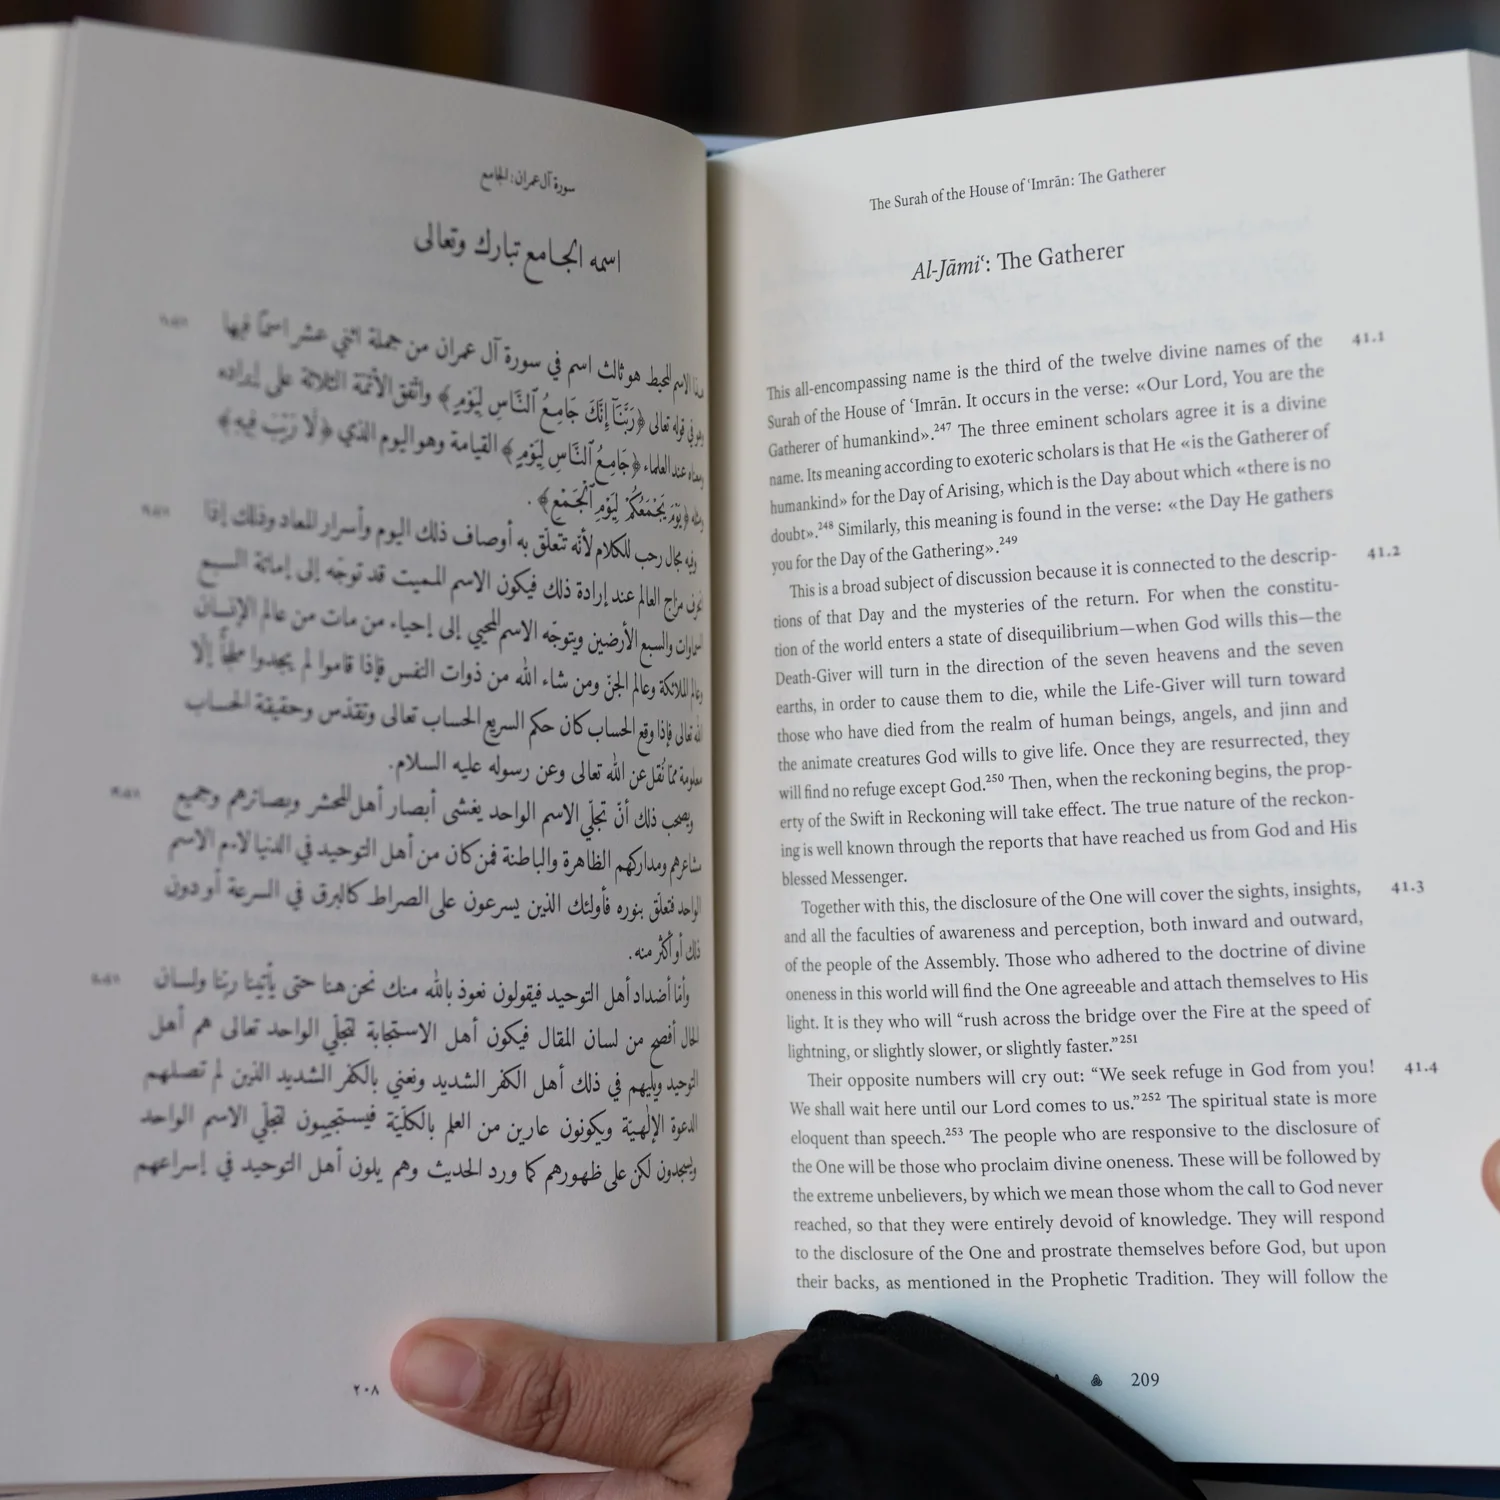 سورة آل عمران: الجامع
اسمه الجامع تبارك وتعالى
هذا الاسم المحيط هو ثالث اسم في سورة آل عمران من جملة اثني عشر اسمًا فيها
وهو في قوله تعالى ﴿رَبَّنَآ إِنَّكَ جَامِعُ ٱلنَّاسِ لِيَوْمٍ﴾ واتّفق الأئمّة الثلاثة على إيراده
ومعناه عند العلماء ﴿جَامِعُ ٱلنَّاسِ لِيَوْمٍ﴾ القيامة وهو اليوم الذي ﴿لَا رَيْبَ فِيهِ﴾
ومثله ﴿يَوْمَ يَجْمَعُكُمْ لِيَوْمِ ٱلْجَمْعِ﴾.
وفيه مجال رحب للكلام لأنّه تتعلّق به أوصاف ذلك اليوم وأسرار المعاد وذلك إذا
مزاج العالم عند إرادة ذلك فيكون الاسم المميت قد توجّه إلى إماتة السبع
السماوات والسبع الأرضين ويتوجّه الاسم المحيي إلى إحياء من مات من عالم الإنسان
وعالم الملائكة وعالم الجنّ ومن شاء الله من ذوات النفس فإذا قاموا لم يجدوا ملجأً إلّا
الله تعالى فإذا وقع الحساب كان حكم السريع الحساب تعالى وتقدّس وحقيقة الحساب
معلومة ممّا نُقل عن الله تعالى وعن رسوله عليه السلام.
ويصحب ذلك أنّ تجلّي الاسم الواحد يغشى أبصار أهل المحشر وبصائرهم وجميع
مشاعرهم ومداركهم الظاهرة والباطنة فمن كان من أهل التوحيد في الدنيا لاءم الاسم
الواحد فتعلّق بنوره فأولئك الذين يسرعون على الصراط كالبرق في السرعة أو دون
ذلك أو أكثر منه.
وأمّا أضداد أهل التوحيد فيقولون نعوذ بالله منك نحن هنا حتى يأتينا ربّنا ولسان
الحال أفصح من لسان المقال فيكون أهل الاستجابة لتجلّي الواحد تعالى هم أهل
التوحيد ويليهم في ذلك أهل الكفر الشديد ونعني بالكفر الشديد الذين لم تصلهم
الدعوة الإلهيّة ويكونون عارين من العلم بالكلّيّة فيستجيبون لتجلّي الاسم الواحد
ويسجدون لكن على ظهورهم كما ورد الحديث وهم يلون أهل التوحيد في إسراعهم
٢٠٨
The Surah of the House of ʿImrān: The Gatherer
Al-Jāmiʿ: The Gatherer
This all-encompassing name is the third of the twelve divine names of the 41.1
Surah of the House of ʿImrān. It occurs in the verse: «Our Lord, You are the
Gatherer of humankind».247 The three eminent scholars agree it is a divine
name. Its meaning according to exoteric scholars is that He «is the Gatherer of
humankind» for the Day of Arising, which is the Day about which «there is no
doubt».248 Similarly, this meaning is found in the verse: «the Day He gathers
you for the Day of the Gathering».249
This is a broad subject of discussion because it is connected to the descrip- 41.2
tions of that Day and the mysteries of the return. For when the constitu-
tion of the world enters a state of disequilibrium—when God wills this—the
Death-Giver will turn in the direction of the seven heavens and the seven
earths, in order to cause them to die, while the Life-Giver will turn toward
those who have died from the realm of human beings, angels, and jinn and
the animate creatures God wills to give life. Once they are resurrected, they
will find no refuge except God.250 Then, when the reckoning begins, the prop-
erty of the Swift in Reckoning will take effect. The true nature of the reckon-
ing is well known through the reports that have reached us from God and His
blessed Messenger.
Together with this, the disclosure of the One will cover the sights, insights, 41.3
and all the faculties of awareness and perception, both inward and outward,
of the people of the Assembly. Those who adhered to the doctrine of divine
oneness in this world will find the One agreeable and attach themselves to His
light. It is they who will “rush across the bridge over the Fire at the speed of
lightning, or slightly slower, or slightly faster.”251
Their opposite numbers will cry out: “We seek refuge in God from you! 41.4
We shall wait here until our Lord comes to us.”252 The spiritual state is more
eloquent than speech.253 The people who are responsive to the disclosure of
the One will be those who proclaim divine oneness. These will be followed by
the extreme unbelievers, by which we mean those whom the call to God never
reached, so that they were entirely devoid of knowledge. They will respond
to the disclosure of the One and prostrate themselves before God, but upon
their backs, as mentioned in the Prophetic Tradition. They will follow the
209